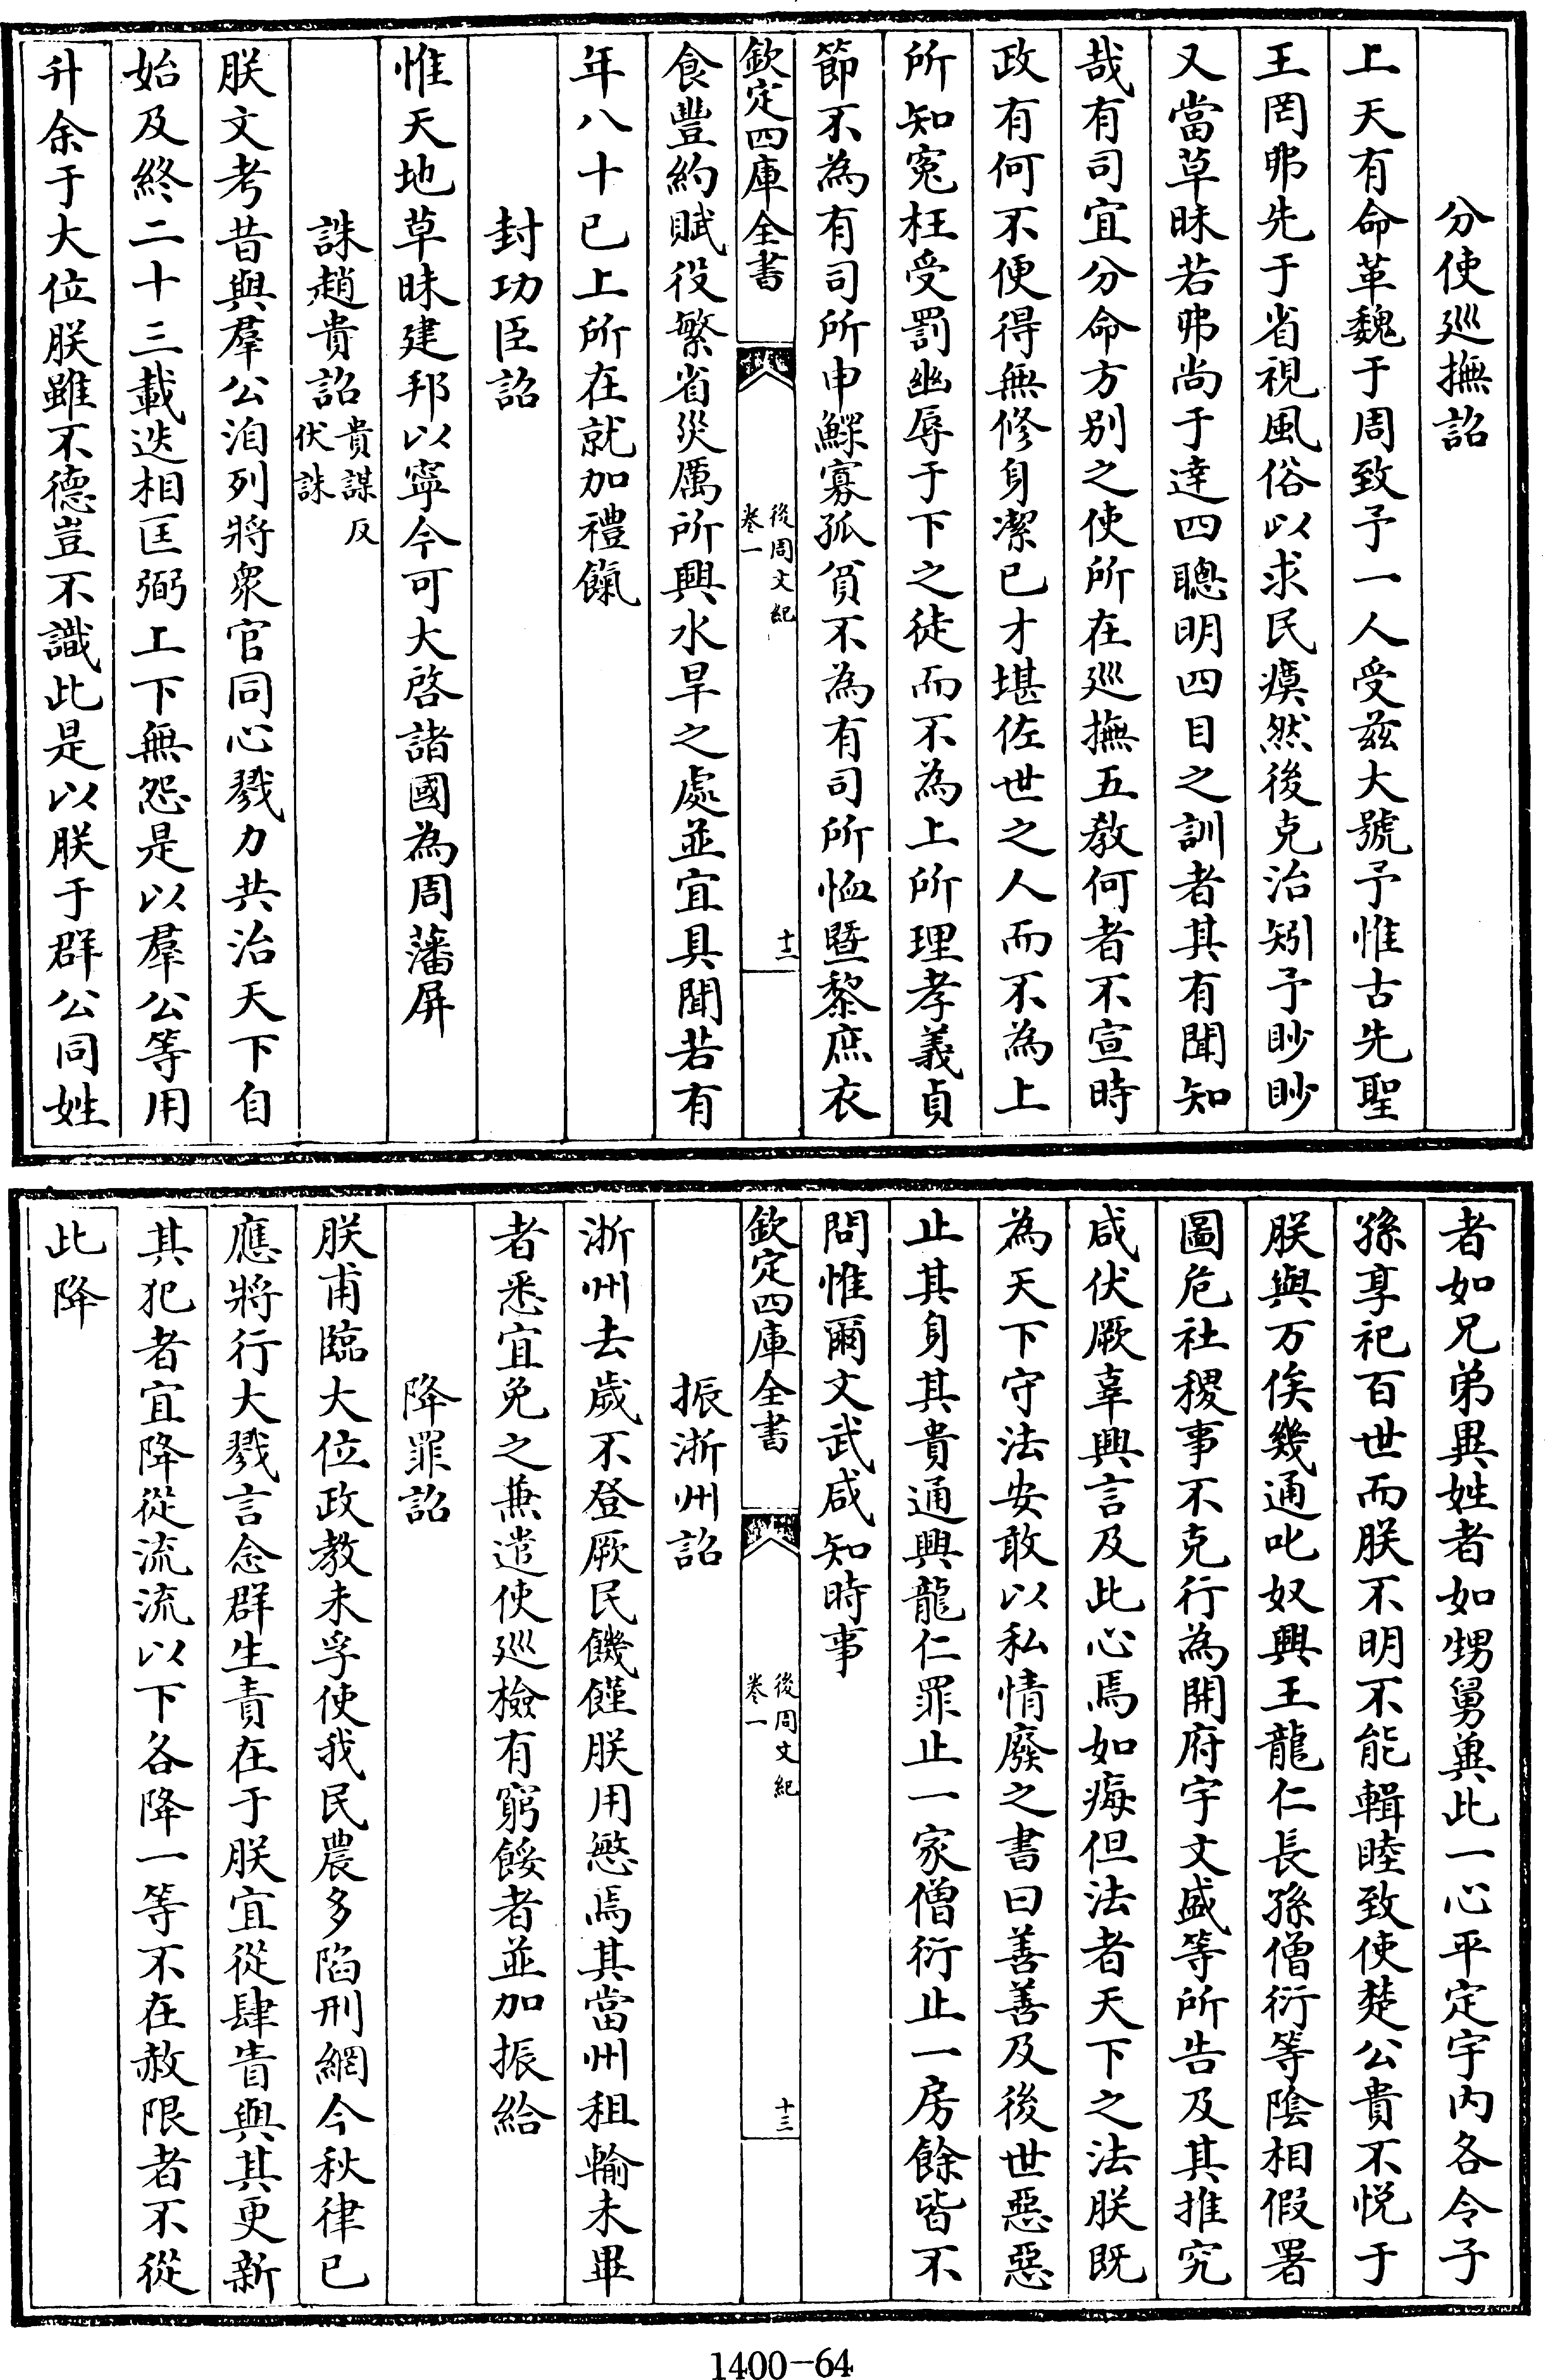 分使廵撫詔
上天有命革魏于周致予一人受兹大號予惟古先聖
王罔弗先于省視風俗以求民瘼然後克治矧予眇眇
又當草昧若弗尚于達四聰明四目之訓者其有聞知
哉有司宜分命方别之使所在廵撫五教何者不宣時
政有何不便得無修身潔已才堪佐世之人而不為上
所知寃枉受罰幽辱于下之徒而不為上所理孝義貞
節不為有司所申鰥寡孤貧不為有司所恤暨黎庶衣
欽定四庫全書
後周文紀
卷一
十二
食豐約賦役繁省災厲所興水旱之處並宜具聞若有
年八十已上所在就加禮餼
封功臣詔
惟天地草昧建邦以寧今可大啓諸國為周藩屏
誅趙貴詔貴謀反
伏誅
朕文考昔與羣公洎列將衆官同心戮力共治天下自
始及終二十三載迭相匡弼上下無怨是以羣公等用
升余于大位朕雖不德豈不識此是以朕于群公同姓
者如兄弟異姓者如甥舅兾此一心平定宇内各令子
孫享祀百世而朕不明不能輯睦致使楚公貴不悦于
朕與万俟幾通叱奴興王龍仁長孫僧衍等陰相假署
圖危社稷事不克行為開府宇文盛等所告及其推究
咸伏厥辜興言及此心焉如痗但法者天下之法朕既
為天下守法安敢以私情廢之書曰善善及後世惡惡
止其身其貴通興龍仁罪止一家僧衍止一房餘皆不
問惟爾文武咸知時事
欽定四庫全書
後周文紀
卷一
十三
振浙州詔
浙州去歲不登厥民饑饉朕用慜焉其當州租輸未畢
者悉宜免之兼遣使廵檢有窮餒者並加振給
降罪詔
朕甫臨大位政教未孚使我民農多陷刑網今秋律已
應將行大戮言念群生責在于朕宜從肆眚與其更新
其犯者宜降從流流以下各降一等不在赦限者不從
此降
1400-64